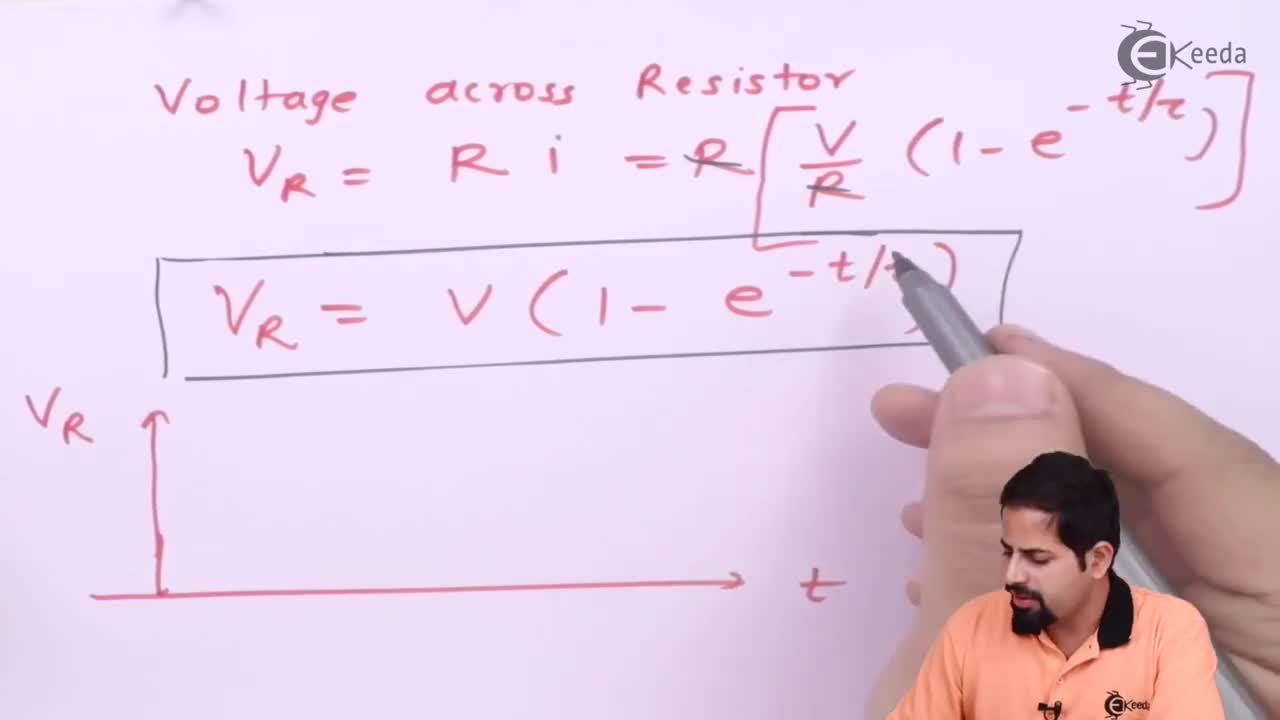 EKeeda
Voltage across Resistor
V_R = R i = R [ V/R (1 - e^{-t/τ}) ]
V_R = V (1 - e^{-t/τ})
V_R
t
EKeeda